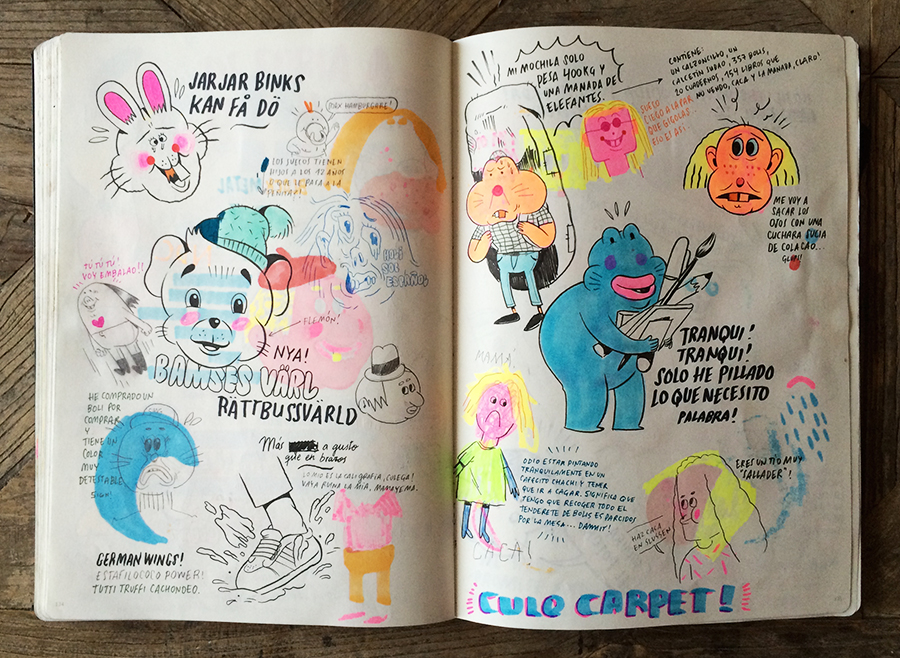 JARJAR BINKS
KAN FÅ DÖ
HAMBURGARE!
LOS SUECOS TIENEN
HIJOS A LOS 12 AÑOS
O QUE LE PASA A LA
PENHA?!
HOLI
SOY
ESPAÑOL
TÚ TÚ TÚ!
VOY EMBALAO!!
FLEMÓN!
NYA!
BAMSES VÄRL
RÄTTBUSSVÄRLD
HE COMPRADO UN
BOLI POR
COMPRAR
Y
TIENE UN
COLOR
MUY
DETESTABLE
SIGH!
Más a gusto
que en brazos
LO MIO ES LA CALIGRAFIA, COLEGA!
VAYA RUNA LA MIA, MAMAYEMA.
GERMAN WINGS!
ESTAFILOCOCO POWER!
TUTTI TRUFFI CACHONDEO.
MI MOCHILA SOLO
PESA 400KG Y
UNA MANADA DE
ELEFANTES.
CONTIENE:
UN CALZONCILLO, UN
CALCETIN SUDAO, 357 BOLIS,
20 CUADERNOS, 454 LIBROS QUE
NO VENDO, CACA Y LA MANADA, CLARO!
SUELO
CIEGO A LA PAR
QUE GIGOLAS...
ESO ES ASI.
ME VOY A
SACAR LOS
OJOS CON UNA
CUCHARA SUCIA
DE COLACAO...
TRANQUI!
TRANQUI!
SOLO HE PILLADO
LO QUE NECESITO
PALABRA!
MAMÁ
ODIO ESTAR PINTANDO
TRANQUILAMENTE EN UN
CAFECITO CHACHI Y TENER
QUE IR A CAGAR. SIGNIFICA QUE
TENGO QUE RECOGER TODO EL
TENDERETE DE BOLIS ESPARCIDOS
POR LA MESA... DAMMIT!
CACA!
ERES UN TÍO MUY
"SALLADER"!
HAZ CACA
EN SLUSSEN
CULO CARPET!